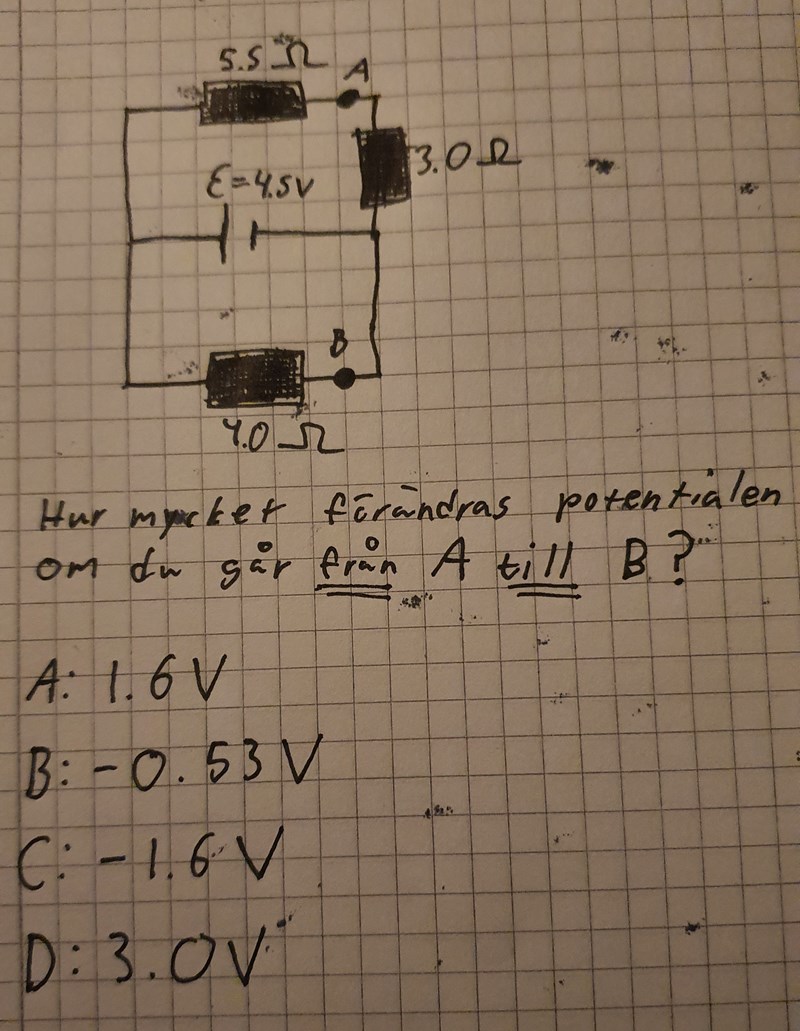 5.5 Ω
A
3.0 Ω
ε=4.5V
B
4.0 Ω
Hur mycket förändras potentialen
om du går från A till B?
A: 1.6 V
B: -0.53 V
C: -1.6 V
D: 3.0 V